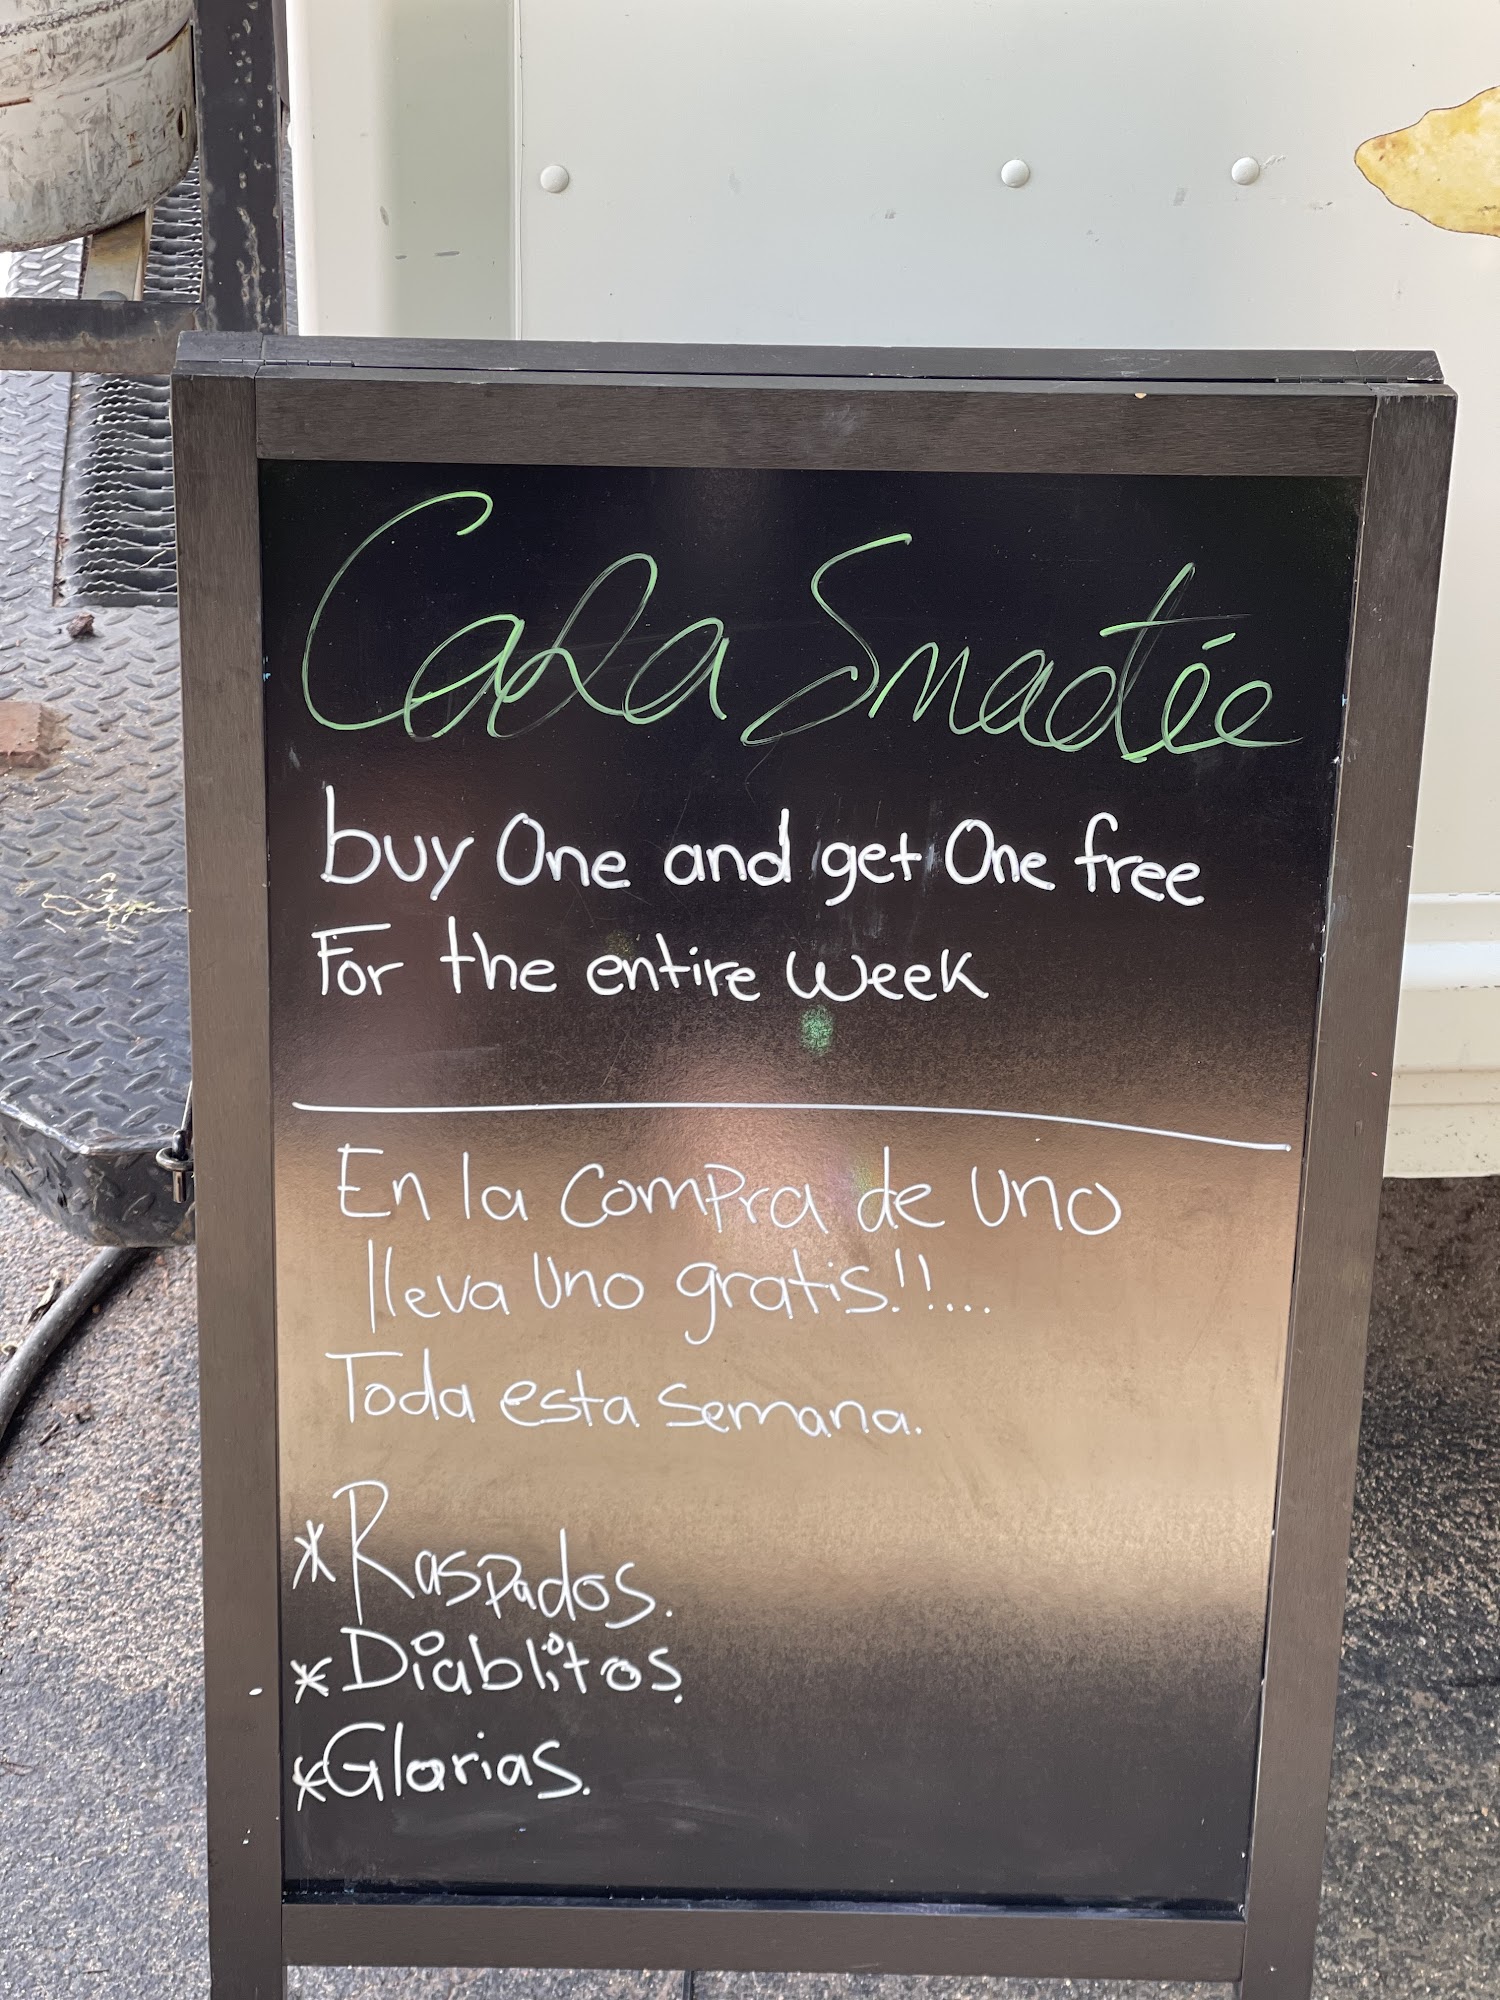 buy One and get One free
For the entire week
En la compra de uno
lleva uno gratis!!...
Toda esta semana.
* Raspados.
* Diablitos.
* Glorias.